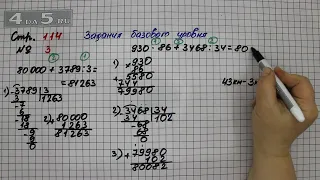 4DA5.RU
Стр. 114 Задания базового уровня
№ 3
930 · 86 + 3468 : 34 = 80
80 000 + 3789 : 3 =
= 81263
1) 3789 | 3
3 1263
7
6
18
18
9
9
0
2) + 80000
1263
81263
1) × 930
86
+ 5580
744
79980
2) 3468 | 34
34 102
68
68
0
3) + 79980
102
80082